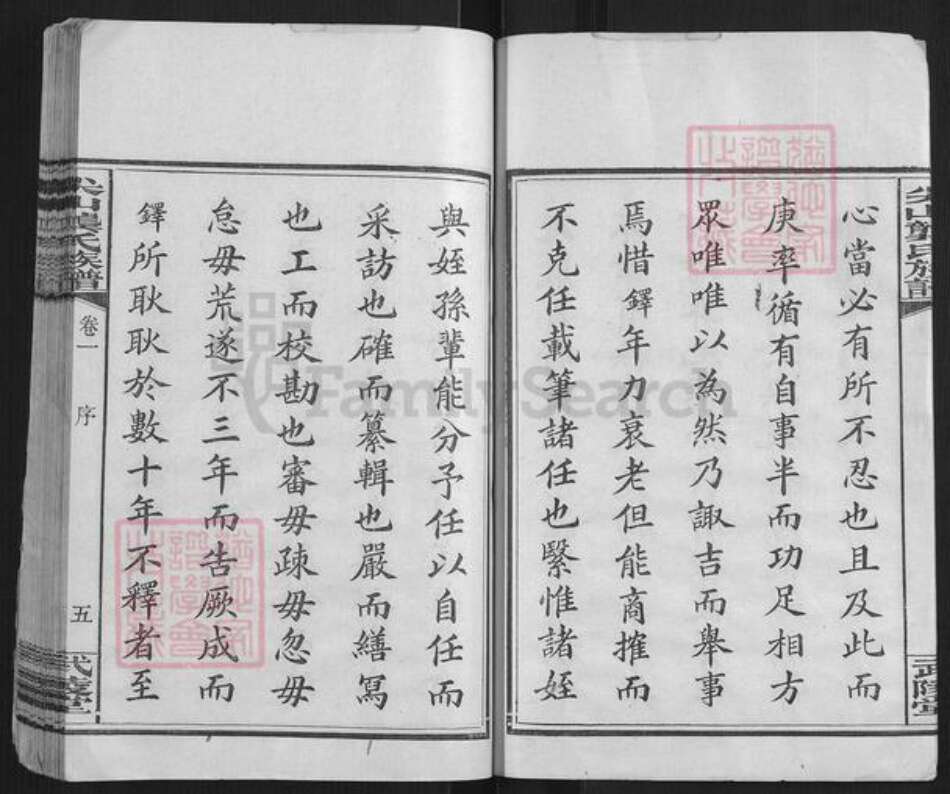 心當必有所不忍也且及此而
庚率循有自事半而功足相方
眾唯唯以為然乃諏吉而舉事
焉惜鐸年力衰老但能商搉而
不克任載筆諸任也繄惟諸姪
與姪孫輩能分予任以自任而
采訪也確而纂輯也嚴而繕寫
也工而校勘也審毋疎毋忽毋
怠毋荒遂不三年而告厥成而
鐸所耿耿於數十年不釋者至
卷一
序
五
武陵堂
FamilySearch